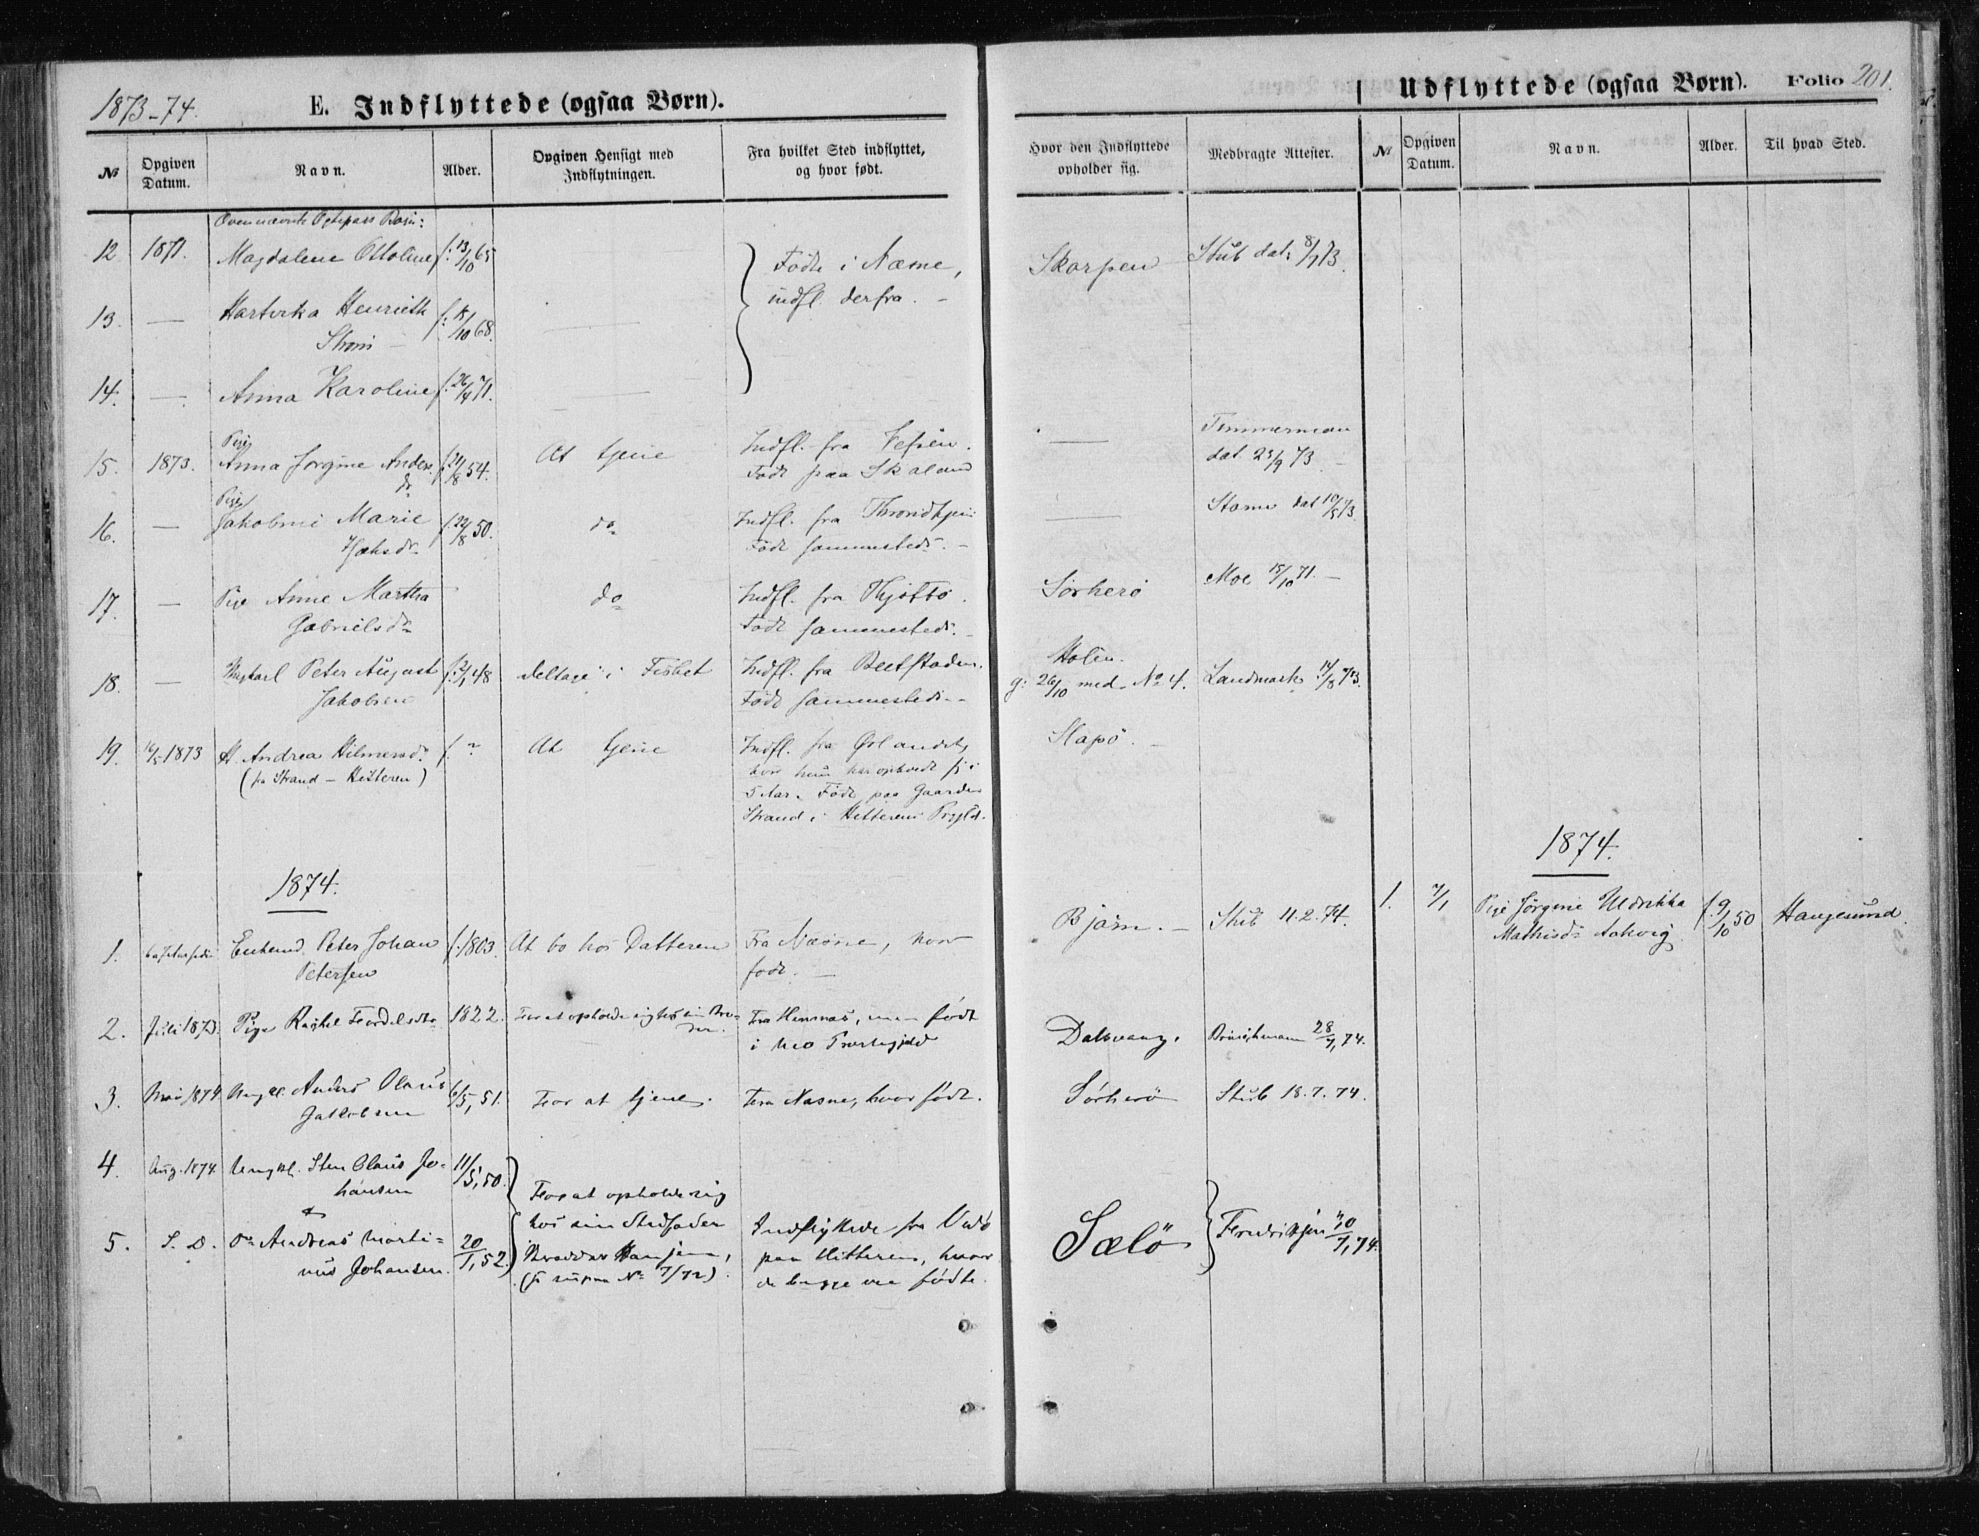 1873-74.
E. Indflyttede (ogsaa Børn).
№
Opgiven Datum.
Navn.
Alder.
Opgiven Hensigt med Indflytningen.
Fra hvilket Sted indflyttet, og hvor født.
Ovennævnte Børn:
12 1871. Magdalene Ottoline f. 13/10 65
Födte i Næsne,
indfl. derfra. -
13. — Henrieth f. /10 68.
14. — Anna Karoline f. 26/4 71.
15. 1873. Pige Anna Jørgine Anders d. f. 21/8 54. At tjene Indfl. fra Vefsen.
Født paa Skaland
16. — Pige Jakobine Marie f. 22/8 50. do Indfl. fra Throndhjem
Født sammesteds. -
17. — Pige Anne Martha do Indfl. fra Thjøttø.
Gabrielsd. Født sammesteds. -
18. — Ungkarl Peter August f. 2/1 48 deltage i Fisket Indfl. fra Beitstaden.
Jakobsen Født sammesteds. -
19. 16/5 1873 Andrea Hilmersd. f. ? At tjene Indfl. fra Ørlandet,
(fra Strand - Hitteren) hvor hun har opholdt sig i
5 Aar. Født paa Gaarden
Strand i Hitterens Prgjld.
1874.
1. Enkemd. Peter Johan f. 1803. At bo hos Datteren Fra Næsne, hvor
Petersen født. —
2. Juli 1873. Pige Rachel 1822. For at opholde sig hos sin Bro- Fra Hemnæs, men født
der. i Mo Præstegjeld
3. Mai 1874 Ungkl. Anders Olaus 6/5, 51. For at tjene. Fra Næsne, hvor født.
Jakobsen
4. Aug. 1874 Ungkl. Sten Olaus Jo- 11/5, 50.
hansen For at opholde sig
5. S. D. Do Andreas Marti- 20/1, 52. hos sin Stedfader Indflyttede fra
nus Johansen. paa Hitteren, hvor
(jfr № 7/72). de begge ere fødte.
Udflyttede (ogsaa Børn).
Folio 201.
Hvor den Indflyttede opholder sig.
Medbragte Attester.
№
Opgiven Datum.
Navn.
Alder.
Til hvad Sted.
Skarpen Stub dat. 8/7 73.
— Timmerman
dat 23/9 73. -
— dat 10/5 73.
Sørherø Moe 15/10 71. -
Holen.
g: 26/10 med № 4. Landmark 14/8 73.
Slapø. -
1874.
Bjørn. - Stub 11.2.74.
1. 7/1 Pige Jørgine Uldrikka f. 9/10 50 Haugesund.
Mathisd. Aakvig
Dalsvaag. Brinchmann 28/7, 74.
Sørherø Stub 18.7.74.
Sælø 10/7, 74.